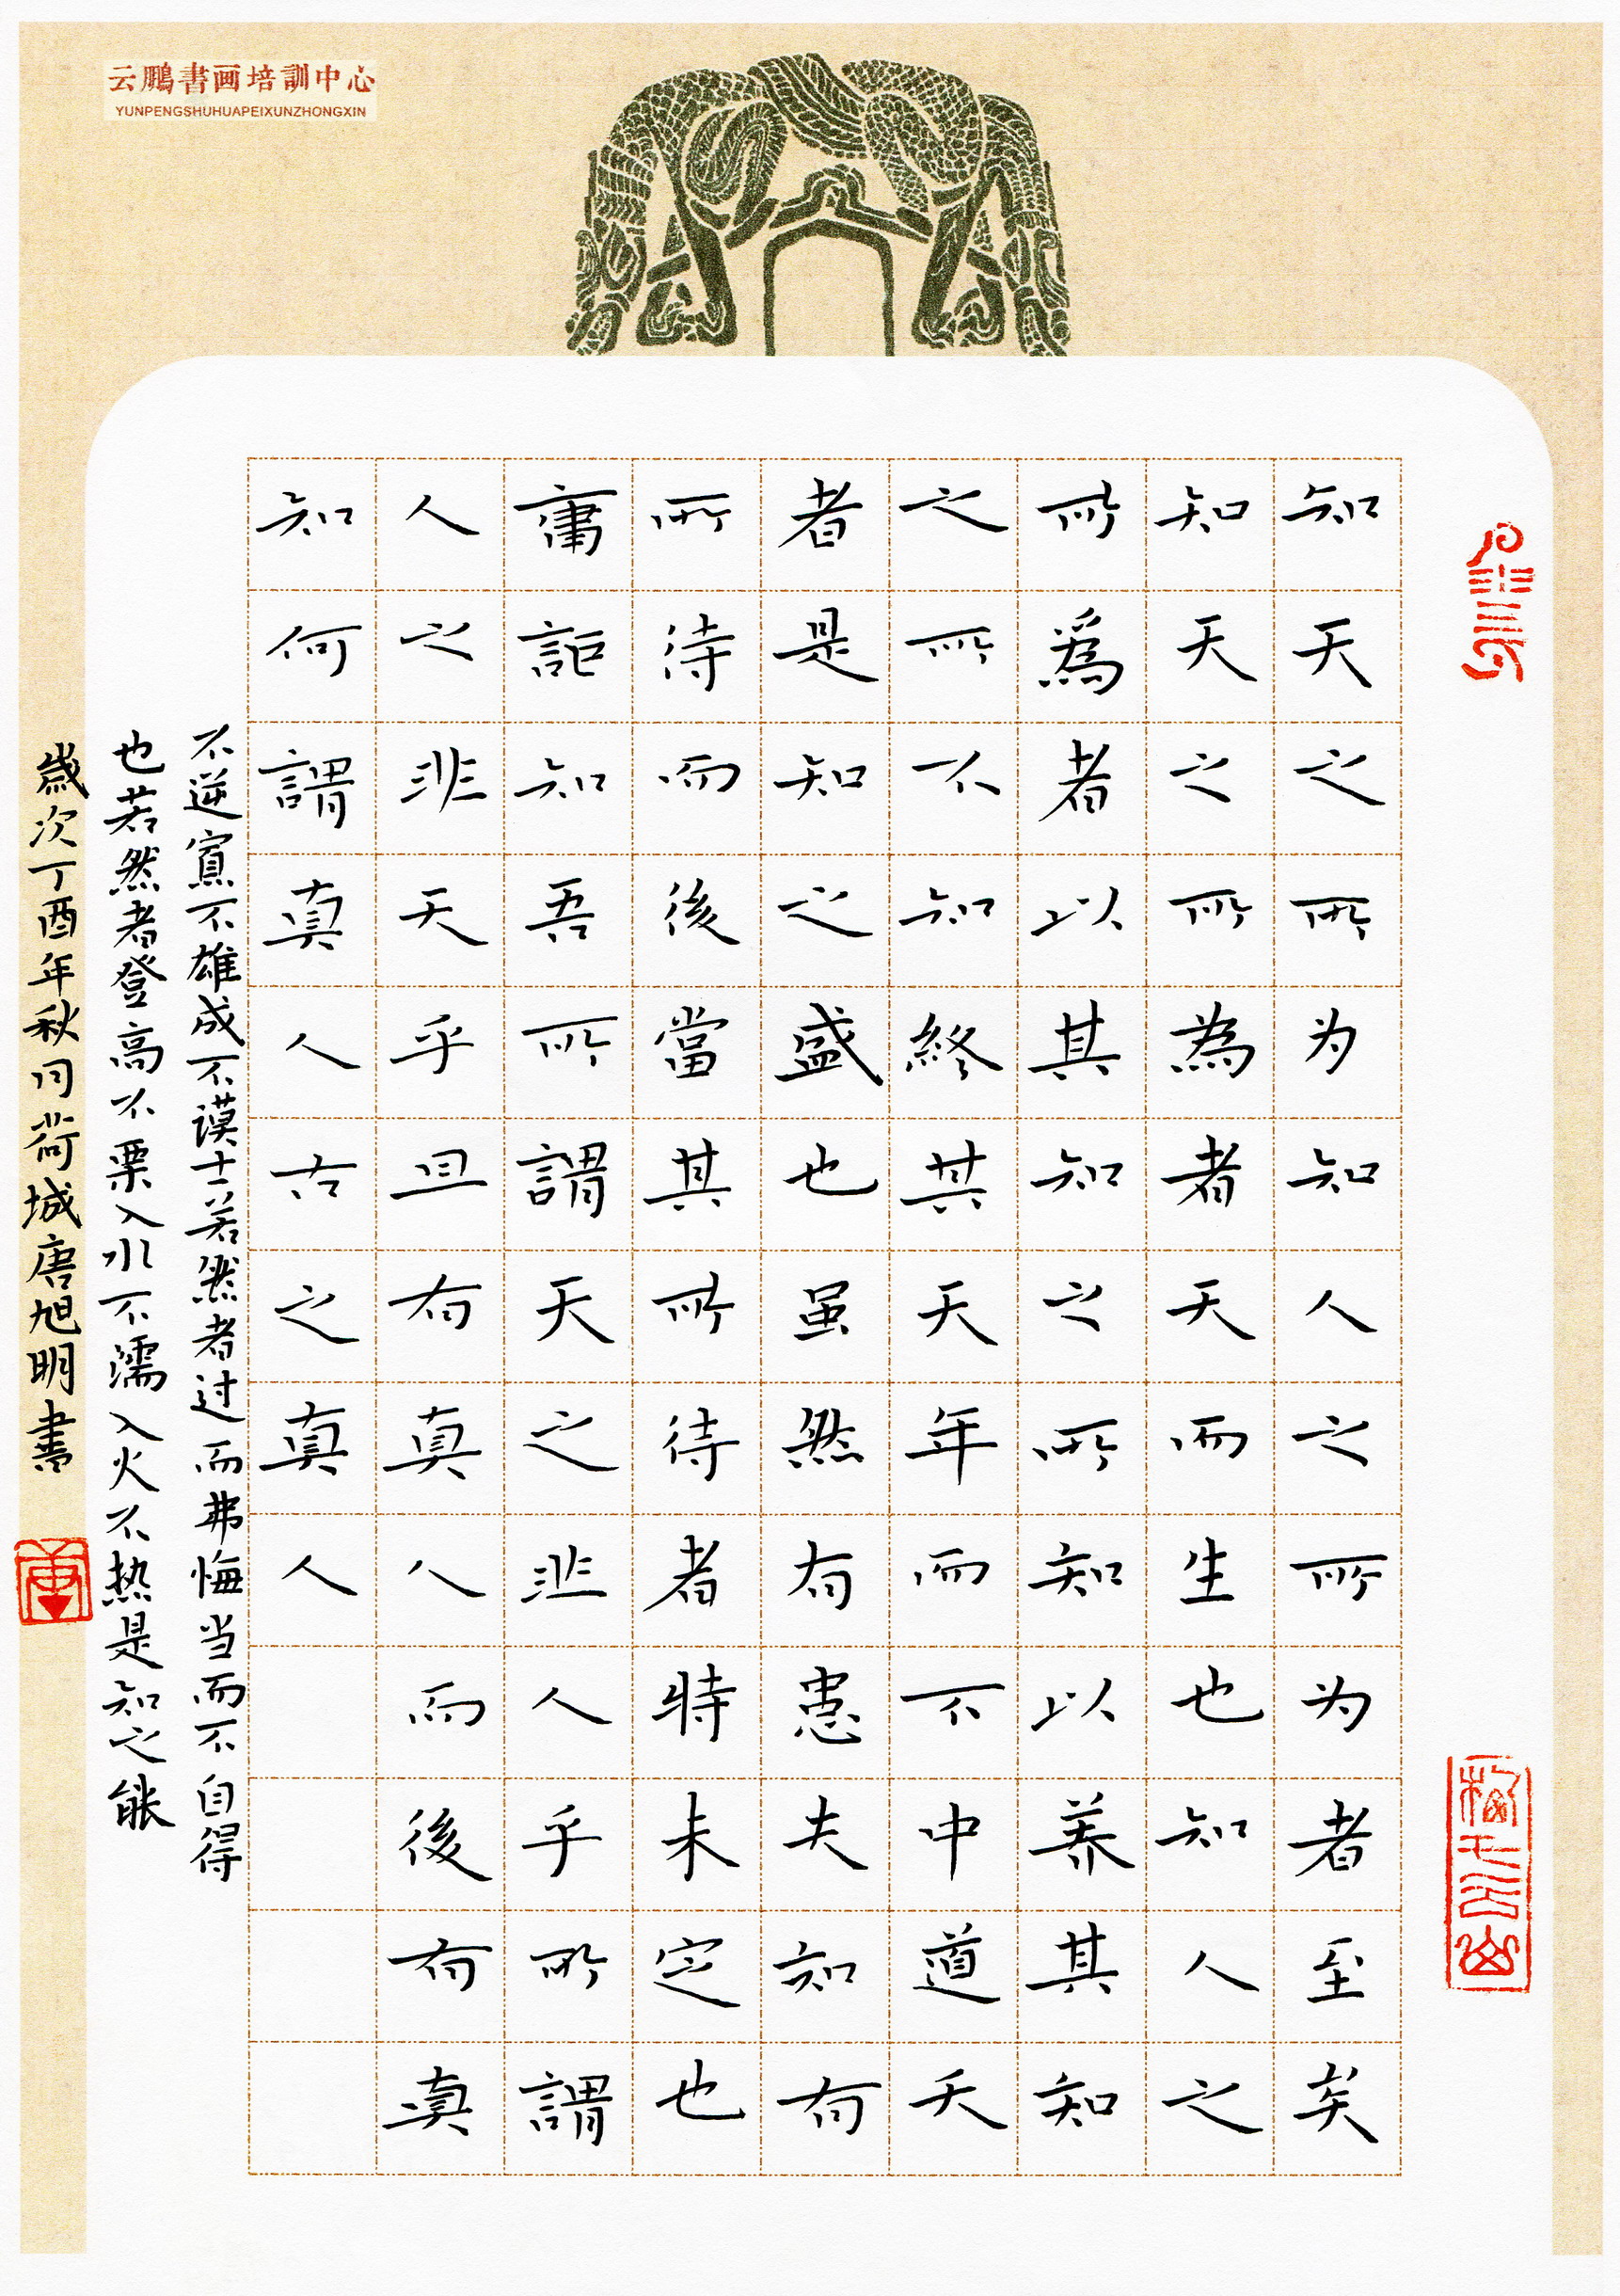 云鵬書画培訓中心
YUNPENGSHUHUAPEIXUNZHONGXIN
知天之所为知人之所为者至矣
知天之所為者天而生也知人之
所為者以其知之所知以养其知
之所不知終其天年而不中道夭
者是知之盛也虽然有患夫知有
所待而後當其所待者特未定也
庸詎知吾所謂天之非人乎所謂
人之非天乎且有真人而後有真
知何謂真人古之真人
不逆寡不雄成不谟士若然者过而弗悔当而不自得
也若然者登高不栗入水不濡入火不热是知之能
歲次丁酉年秋月荷城唐旭明書